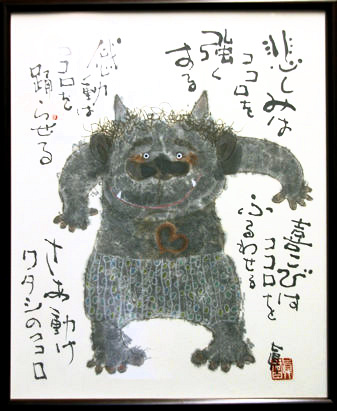 悲しみは
ココロを
強く
する
喜こびは
ココロを
ふるわせる
感動は
ココロを
踊らせる
さあ動け
ワタシのココロ